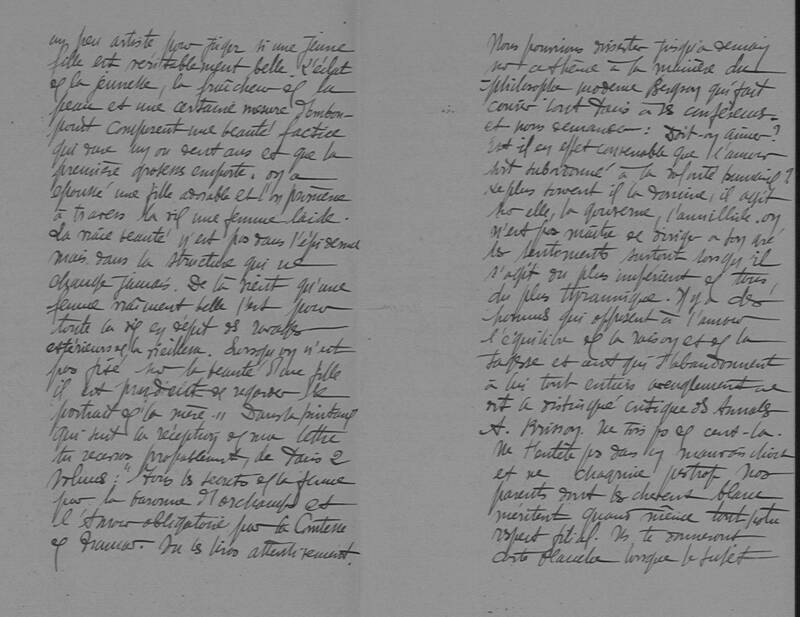 un peu artiste pour juger si une jeune
fille est véritablement belle. L'éclat
de la jeunesse, la fraîcheur de la
peau et une certaine mesure d'embon-
point composent une beauté factice
qui dure un ou deux ans et que la
première grossesse emporte. On a
épousé une fille adorable et l'on promène
à travers la vie une femme laide.
La vraie beauté n'est pas dans l'épiderme
mais dans la structure qui ne
change jamais. De là vient qu'une
femme vraiment belle l'est pour
toute la vie en dépit des
extérieurs de la vieillesse. Lorsqu'on n'est
pas fixé sur la beauté d'une fille
il est prudent de regarder le
portrait de la mère. Dans la
qui suit la réception de ma lettre
tu recevras probablement, de Paris 2
volumes: "Tous les secrets de la femme
par la baronne d'Orchamps et
l'Amour obligatoire par la Comtesse
de Tramar. Tu les liras attentivement.
Nous pourrions disserter jusqu'à demain
sur ce thème à la manière du
philosophe moderne Bergson qui fait
courir tout Paris à ses conférences
et nous demander: Doit-on aimer?
Est il en effet convenable que l'amour
soit subordonné à la volonté humaine?
Le plus souvent il la domine, il agit
sur elle, la gouverne, l'annihile. On
n'est pas maître de diriger à son gré
ses sentiments surtout lorsqu'il
s'agit du plus impérieux et tous
du plus tyrannique. Il y a des
hommes qui opposent à l'amour
l'équilibre de la raison et de la
sagesse et ceux qui s'abandonnent
à lui tout entiers aveuglement ce
dit le distingué critique des Annales
A. Brisson. Ne sois pas de ceux-là.
Ne t'entête pas dans un mauvais choix
et ne chagrine pas trop nos
parents dont les cheveux blancs
méritent quand même tout notre
respect filial. Ils te donneront
carte blanche lorsque le sujet